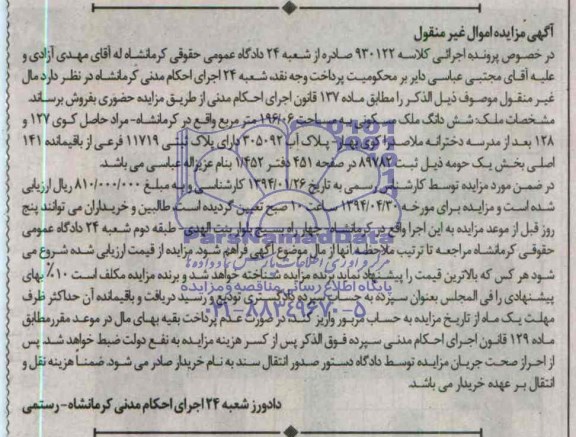 آگهی مزایده اموال غیر منقول
در خصوص پرونده اجرائی کلاسه ۹۳۰۱۲۲ صادره از شعبه ۲۴ دادگاه عمومی حقوقی کرمانشاه له آقای مهدی آزادی و
علیه آقای مجتبی عباسی دایر بر محکومیت پرداخت وجه نقد، شعبه ۲۴ اجرای احکام مدنی کرمانشاه در نظر دارد مال
غیر منقول موصوف ذیل الذکر را مطابق ماده ۱۳۷ قانون اجرای احکام مدنی از طریق مزایده حضوری بفروش برساند.
مشخصات ملک: شش دانگ ملک مسکونی به مساحت ۱۹۶/۰۶ متر مربع واقع در کرمانشاه- مراد حاصل کوی ۱۲۷ و
۱۲۸ بعد از مدرسه دخترانه ملاصدرا کوی پلاک آب ۳۰۵۰۹۲ دارای پلاک ثبتی ۱۱۷۱۹ فرعی از باقیمانده ۱۴۱
اصلی بخش یک حومه ذیل ثبت ۸۹۷۸۲ در صفحه ۴۵۱ دفتر ۱/۴۵۲ بنام عزیزاله عباسی می باشد.
در ضمن مورد مزایده توسط کارشناس رسمی به تاریخ ۱۳۹۴/۰۱/۲۶ کارشناسی و به مبلغ ۸۱۰/۰۰۰/۰۰۰ ریال ارزیابی
شده است و مزایده برای مورخه ۱۳۹۴/۰۴/۳۰ ساعت ۱۰ صبح تعیین گردیده است. طالبین و خریداران می توانند پنج
روز قبل از موعد مزایده به این اجرا واقع در کرمانشاه- چهار راه بسیج بلوار بنت الهدی- طبقه دوم شعبه ۲۴ دادگاه عمومی
حقوقی کرمانشاه مراجعه تا ترتیب ملاحظه آنها از مال موضوع آگهی فراهم شود. مزایده از قیمت ارزیابی شده شروع می
شود هر کس که بالاترین قیمت را پیشنهاد نماید برنده مزایده شناخته خواهد شد و برنده مزایده مکلف است ۱۰٪ بهای
پیشنهادی را فی المجلس بعنوان سپرده به حساب سپرده دادگستری تودیع و رسید دریافت و باقیمانده آن حداکثر ظرف
مهلت یک ماه از تاریخ مزایده به حساب مزبور واریز کند. در صورت عدم پرداخت بقیه بهای مال در موعد مقرر مطابق
ماده ۱۲۹ قانون اجرای احکام مدنی سپرده فوق الذکر پس از کسر هزینه مزایده به نفع دولت ضبط خواهد شد. پس
از احراز صحت جریان مزایده توسط دادگاه دستور صدور انتقال سند به نام خریدار صادر می شود. ضمناً هزینه نقل و
انتقال بر عهده خریدار می باشد.
دادورز شعبه ۲۴ اجرای احکام مدنی کرمانشاه- رستمی
ParsNamadData
پایگاه اطلاع رسانی مناقصه و مزایده
۰۲۱-۸۸۳۴۹۶۷۰-۵